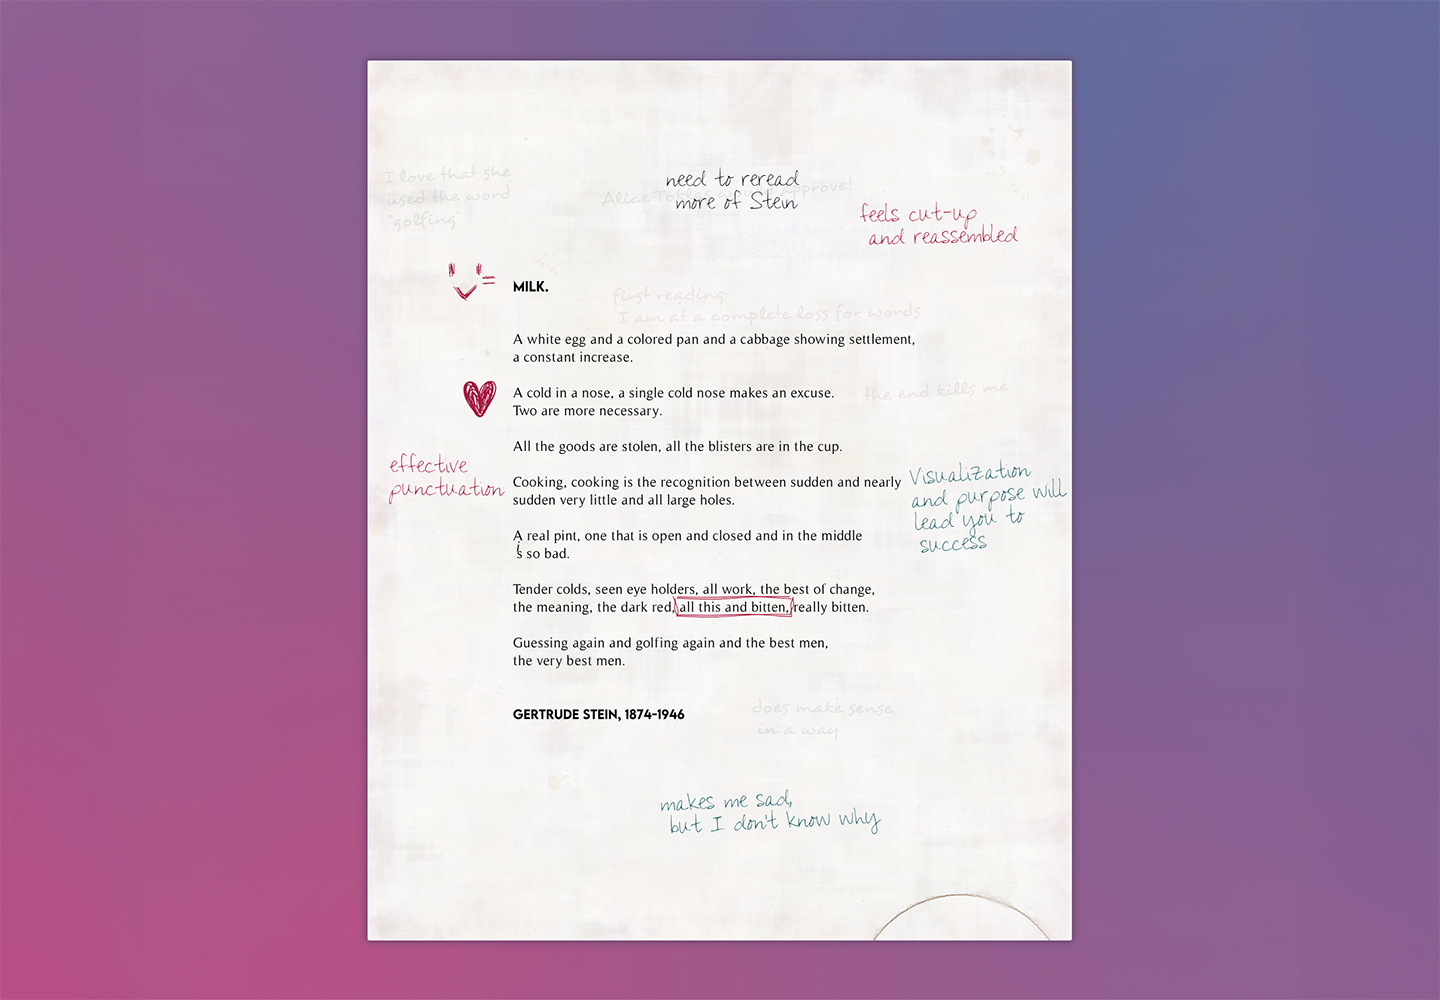 I love that she
used the word
"golfing"
need to reread
more of Stein
Alice Toklas would approve!
feels cut-up
and reassembled
MILK.
first reading:
I am at a complete loss for words
A white egg and a colored pan and a cabbage showing settlement,
a constant increase.
A cold in a nose, a single cold nose makes an excuse.
Two are more necessary.
the end kills me
All the goods are stolen, all the blisters are in the cup.
effective
punctuation
Cooking, cooking is the recognition between sudden and nearly
sudden very little and all large holes.
Visualization
and purpose will
lead you to
success
A real pint, one that is open and closed and in the middle
is so bad.
Tender colds, seen eye holders, all work, the best of change,
the meaning, the dark red, all this and bitten, really bitten.
Guessing again and golfing again and the best men,
the very best men.
GERTRUDE STEIN, 1874-1946
does make sense,
in a way
makes me sad,
but I don't know why